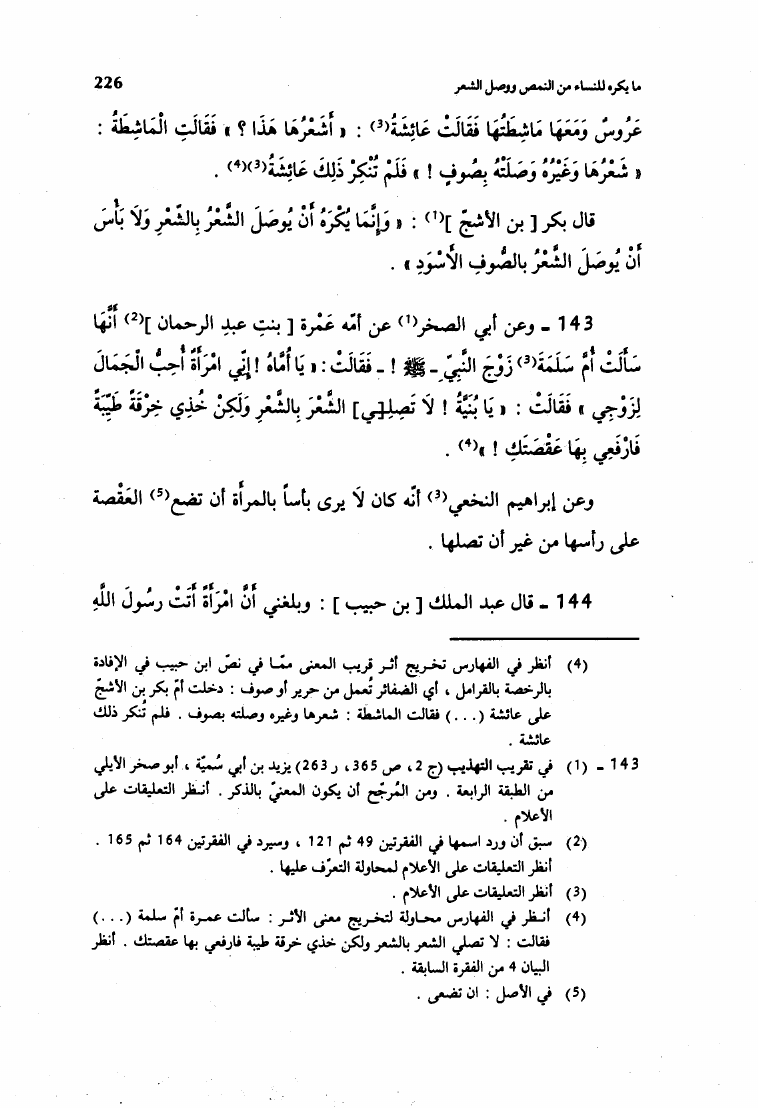 ما يكره للنساء من النمص ووصل الشعر 226
عَرُوسٌ وَمَعَهَا مَاشِطَتُهَا فَقَالَتْ عَائِشَةُ(3) : « أَشَعْرُهَا هَذَا ؟ » فَقَالَتِ الْمَاشِطَةُ :
« شَعْرُهَا وَغَيْرُهُ وَصَلَتْهُ بِصُوفٍ ! » فَلَمْ تُنْكِرْ ذَلِكَ عَائِشَةُ(3)(4) .
قال بكر [ بن الأشجّ ](1) : « وَإِنَّمَا يُكْرَهُ أَنْ يُوصَلَ الشَّعْرُ بِالشَّعْرِ وَلَا بَأْسَ
أَنْ يُوصَلَ الشَّعْرُ بالصُّوفِ الأَسْوَدِ » .
143 - وعن أبي الصخر(1) عن أمّه عَمْرة [ بنتِ عبدِ الرحمان ](2) أَنَّهَا
سَأَلَتْ أُمَّ سَلَمَةَ(3) زَوْجَ النَّبِيِّ - ﷺ ! - فَقَالَتْ : « يَا أُمَّاهُ ! إِنِّي امْرَأَةٌ أُحِبُّ الْجَمَالَ
لِزَوْجِي » فَقَالَتْ : « يَا بُنَيَّةُ ! لَا تَصِلِـ[ـي] الشَّعْرَ بِالشَّعْرِ وَلَكِنْ خُذِي خِرْقَةً طَيِّبَةً
فَارْفَعِي بِهَا عَقْصَتَكِ ! »(4) .
وعن إبراهيم النخعي(3) أنه كان لَا يرى بأساً بالمرأة أن تضع(5) العَقْصة
على رأسها من غير أن تصلها .
144 - قال عبد الملك [ بن حبيب ] : وبلغني أَنَّ امْرَأَةً أَتَتْ رَسُولَ اللَّهِ
(4) أنظر في الفهارس تخريج أثر قريب المعنى ممّا في نصّ ابن حبيب في الإفادة
بالرخصة بالقرامل ، أي الضفائر تُعمل من حرير أو صوف : دخلت أمّ بكر بن الأشجّ
على عائشة (...) فقالت الماشطة : شعرها وغيره وصلته بصوف . فلم تُنكر ذلك
عائشة .
143 - (1) في تقريب التهذيب (ج 2 ، ص 365 ، ر 263) يزيد بن أبي سُميّة ، أبو صخر الأيلي
من الطبقة الرابعة . ومن المُرجّح أن يكون المعنيّ بالذكر . أنظر التعليقات على
الأعلام .
(2) سبق أن ورد اسمها في الفقرتين 49 ثم 121 ، وسيرد في الفقرتين 164 ثم 165 .
أنظر التعليقات على الأعلام لمحاولة التعرّف عليها .
(3) أنظر التعليقات على الأعلام .
(4) أنظر في الفهارس محاولة لتخريج معنى الأثر : سألت عمرة أمّ سلمة (...)
فقالت : لا تصلي الشعر بالشعر ولكن خذي خرقة طيبة فارفعي بها عقصتك . أنظر
البيان 4 من الفقرة السابقة .
(5) في الأصل : ان تضعى .